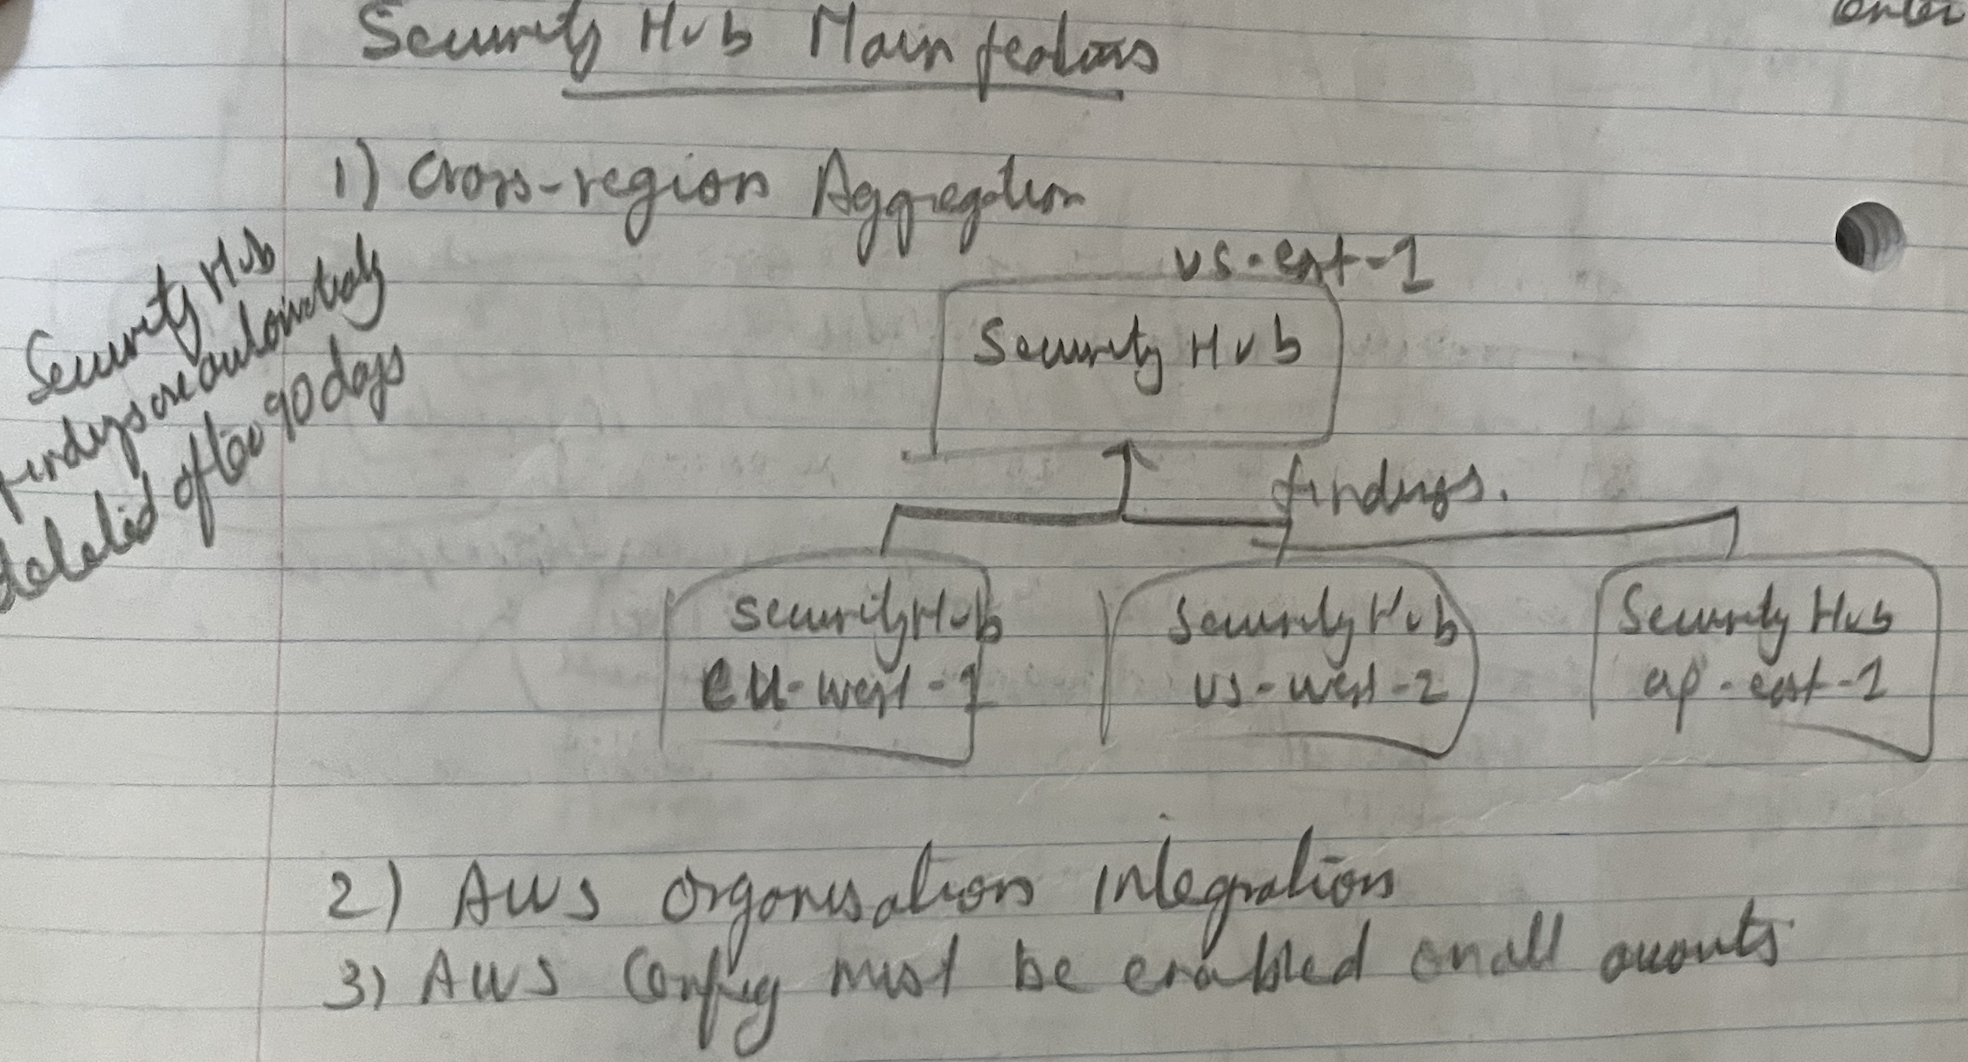 Security Hub Main features
1) Cross-region Aggregation
Security Hub
findings are automatically
deleted after 90 days
us-east-1
Security Hub
findings.
Security Hub
eu-west-1
Security Hub
us-west-2
Security Hub
ap-east-1
2) AWS Organisations Integration
3) AWS Config must be enabled on all accounts